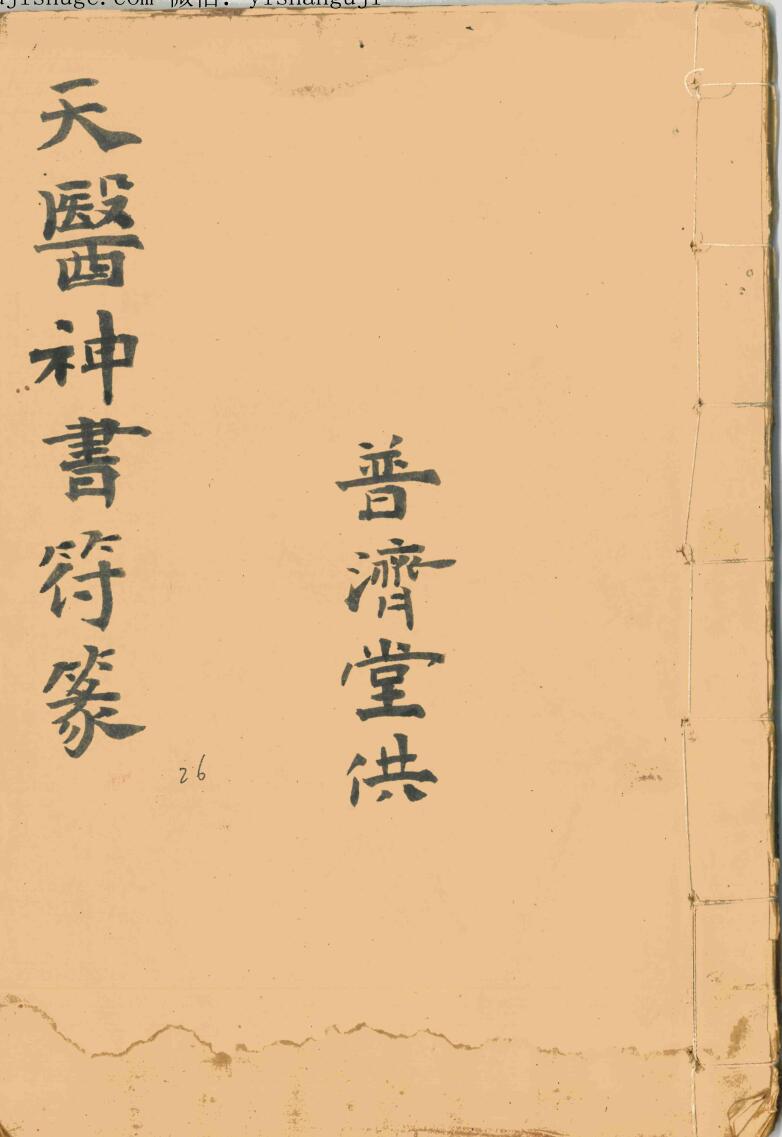 jishuge.com 微信: yishanguji
天醫神書符篆
普濟堂供
26